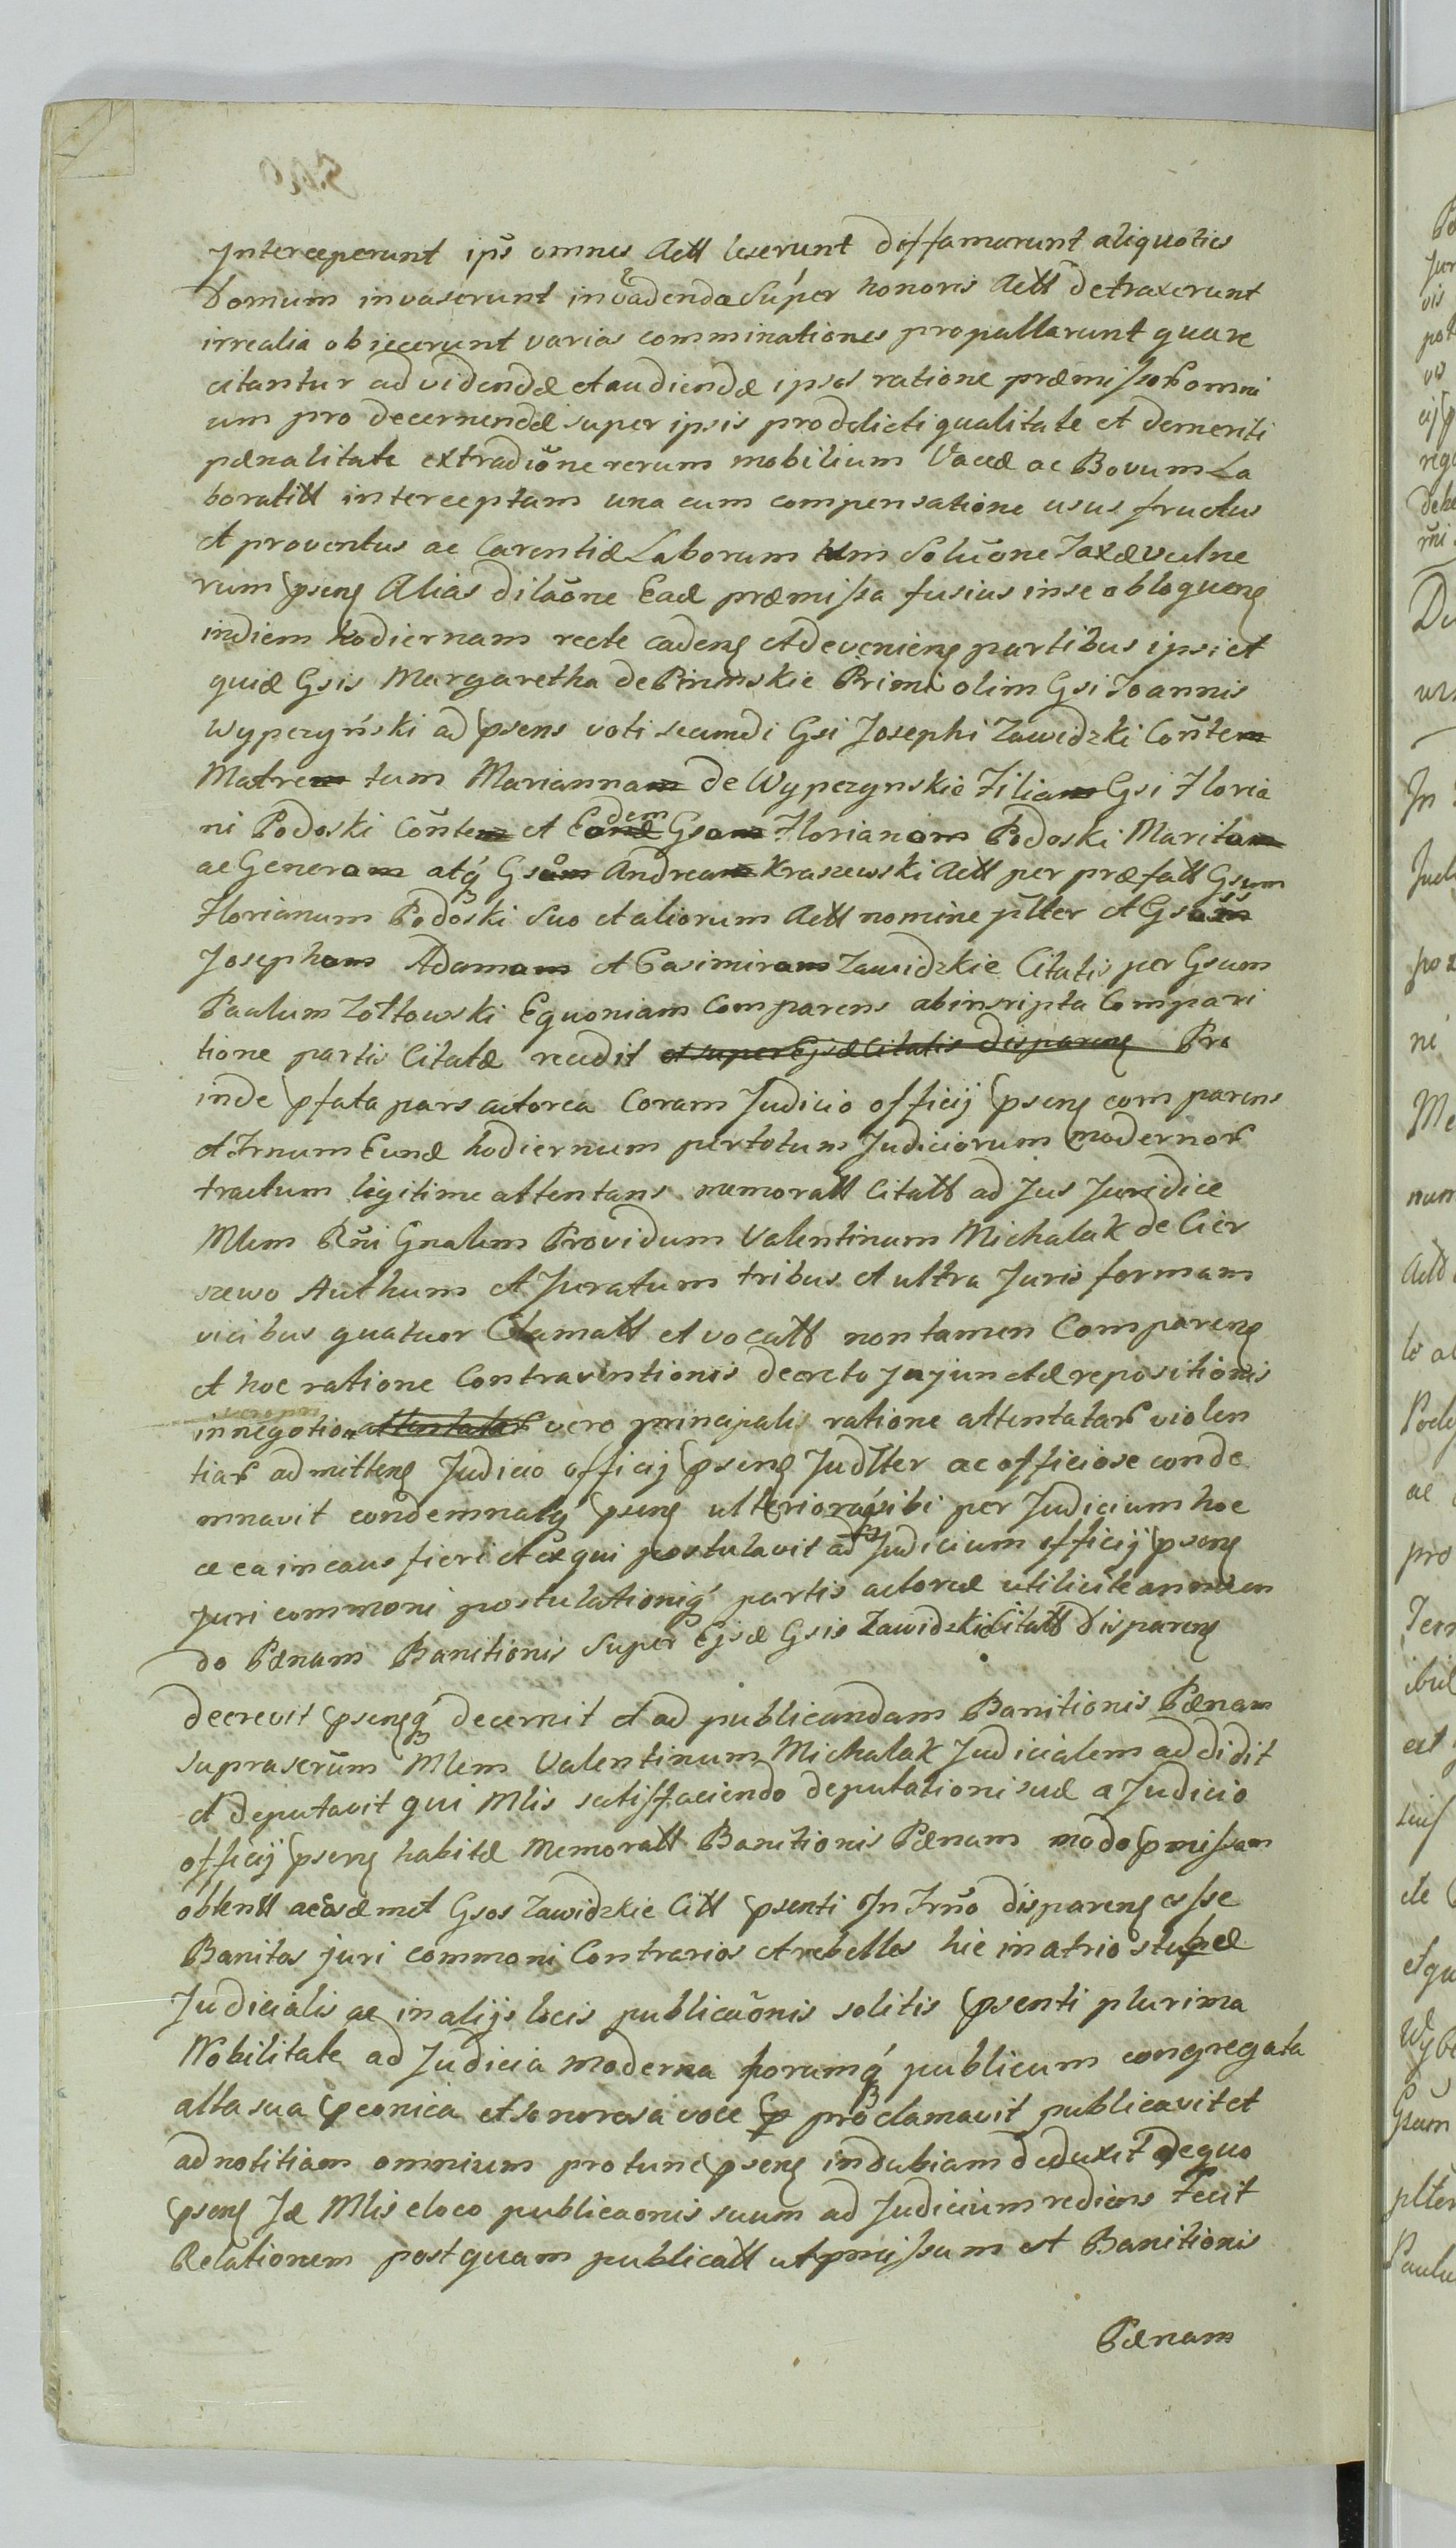 Interceperunt ips̃ omnes Actt leserunt diffamarunt aliquoties
Domum invaserunt invadenda Super honoris Actt detraxerunt
irrealia obiecerunt varias comminationes propallarunt quare
citantur ad videndæ et audiendæ ipsos ratione præmissor omni
um pro decernendæ super ipsis pro delicti qualitate et demeriti
pænalitate extradiõne rerum mobilium Vaccæ ac Bovum La
boralitt interceptam una cum compensatione usus fructus
et proventus ac Carentiæ Laborum tum Soluõne Taxæ vulne
rum pseng Alias dilaõne Eadæ præmissa fusius in se obloqueng
in diem hodiernam recte cadeng et deveniеng partibus ipsi et
quidæ Gsis Margaretha de Pinińskie Primi olim Gsi Joannis
Wypczyński ad psens voti secundi Gsi Josephi Zawidzki Cõntem
Matrem tum Mariannam de Wypczynskie Filiam Gsi Floria
ni Podoski Cõntem et Eandæ dem Gsam Florianam Podoski Maritam
ac Generam atq́ Gsum Andream Kraszewski Actt per præfatt Gsum
Florianum Podoski Suo et aliorum Actt nomine pl̃ter et Gsos
Josepham Adamam et Casimiram Zawidzkie Citatis per Gsum
Paulum Żółtowski Equoniam Comparens ab inscripta Compari
tione partis Citatæ recedit et super Ejsdæ Citatis dispareng Pro
inde pfata pars actorea Coram Judicio officij pseng comparens
et Trnum Eundæ hodiernum per totum Judiciorum modernor
tractum legitime attentans memoratt Citatt ad Jus Juridice
Mlem Rñi Gnalem Providum Valentinum Michalak de Cier
szewo Authum et Juratum tribus et ultra Juris formam
vicibus quatuor Clamatt et vocatt non tamen Compareng
et hoc ratione Contraventionis decreto Injunctæ repositionis
in negotio attentatar vero principalis ratione attentatar violen
tiar admitteng Judicio officij pseng Judl̃ter ac officiose conde
mnavit condemnatq́ pseng ulterioraq́ sibi per Judicium hoc
ce ea in caus fieri et exqui postulavit ad Judicium officij pseng
Juri commoni postulationiq́ partis actoreæ utilicite annuen
do Pænam Banitionis Super Ejsdæ Gsis Zawidzkie Citatt dispareng
decrevit psengq́ decernit et ad publicandam Banitionis Pænam
suprascrũm Mlem Valentinum Michalak Judicialem addidit
et deputavit qui Mlis satisfaciendo deputationi suæ a Judicio
officij pseng habitæ Memoratt Banitionis Pænam modo pmissam
obtentt ac eosdæmet Gsos Zawidzkie Citt psenti In Trño dispareng esse
Banitos juri commoni Contrarios et rebelles hic in atrio stubæ
Judicialis ac in alijs locis publicaõnis solitis psenti plurima
Nobilitate ad Judicia moderna forumq́ publicum congregata
alta sua peonica et sonorosa voce proclamavit publicavit et
ad notitiam omnium pro tunc pseng indubiam deduxit de quo
pseng Idæ Mlis e loco publicaonis suum ad Judicium rediens Fecit
Relationem postquam publicatt ut pmissum est Banitionis
Pænam